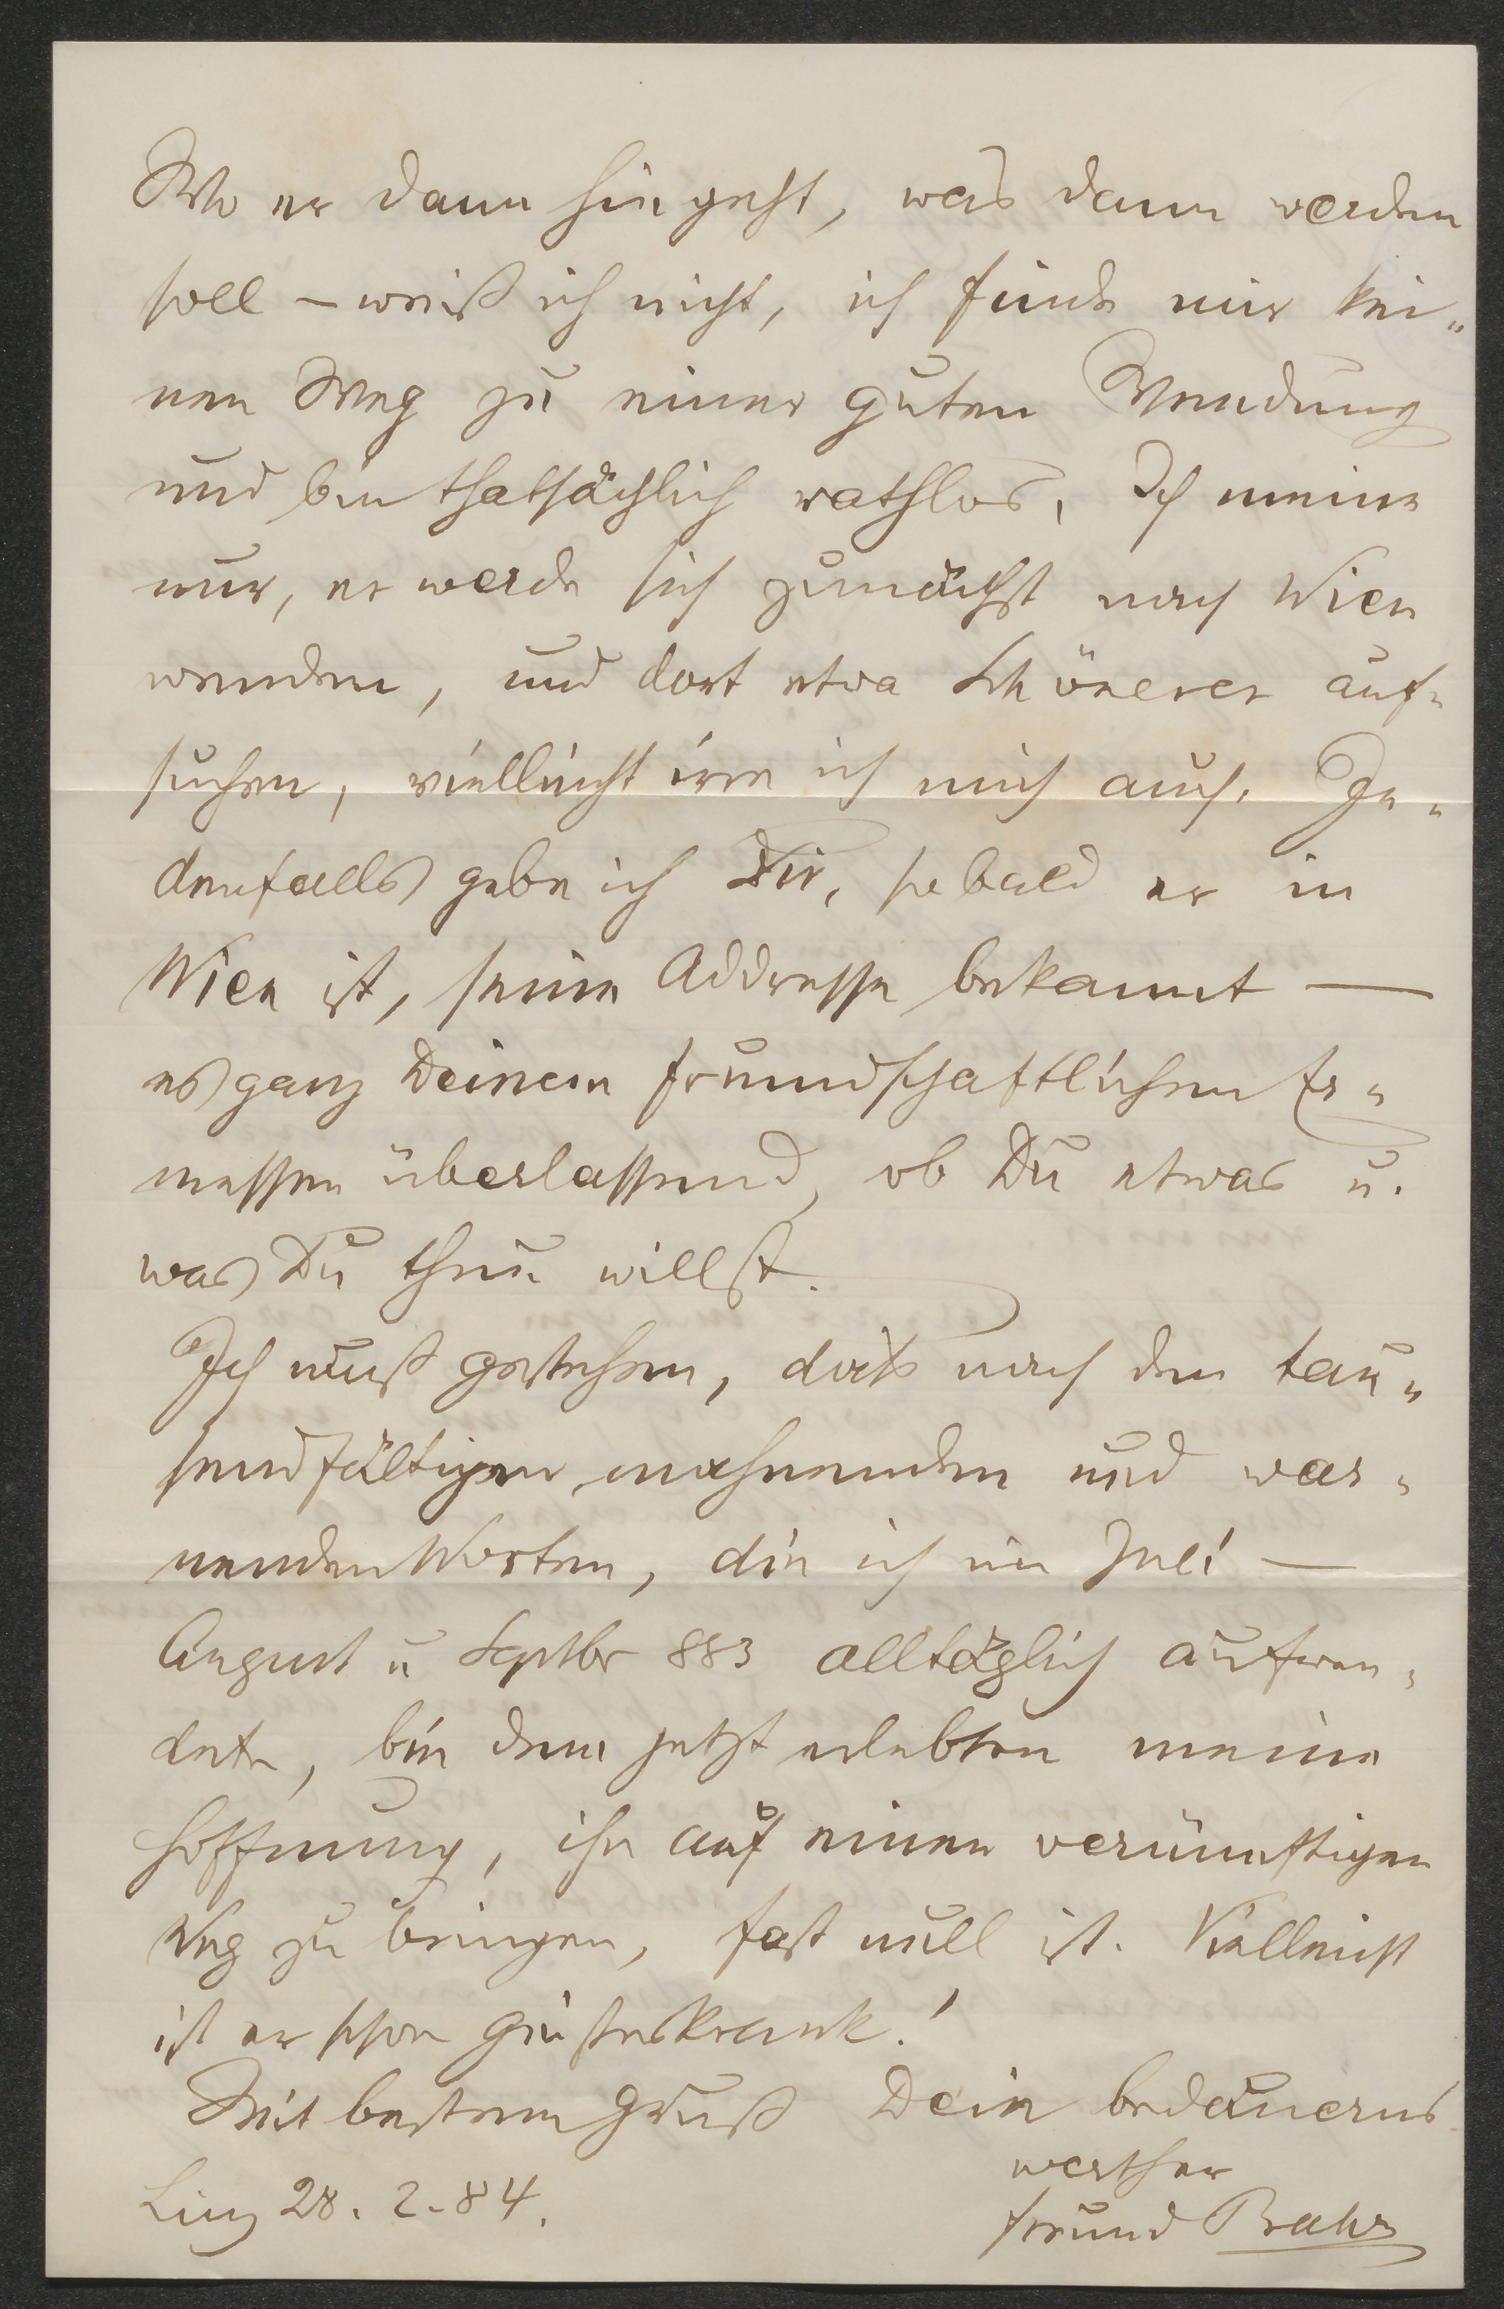 Wo er dann hingeht, was dann werden
soll – weiß ich nicht, ich finde mir kei„
nen Weg zu einer guten Wendung
und bin thatsächlich rathlos. Ich meine
nur, er werde sich zunächst nach Wien
wenden, und dort etwa Schönerer auf„
suchen, vielleicht irre ich mich auch. Je„
denfalls gebe ich Dir, sobald er in
Wien ist, seine Addresse bekannt —
es ganz Deinem freundschaftlichen Er„
messen überlassend, ob Du etwas u.
was Du thun willst.
Ich muß gestehen, daß nach den tau„
sendfältigen mahnenden und war„
nenden Worten, die ich im Juli —
August u Septbr 883 alltäglich aufwen„
dete, bei dem jetzt erlebten meine
Hoffnung, ihn auf einen vernünftigen
Weg zu bringen, fast null ist. Vielleicht
ist er schon geisteskrank!
Mit bestem Gruß Dein bedauerns
werther
Linz 28. 2. 84.
Freund Bahr